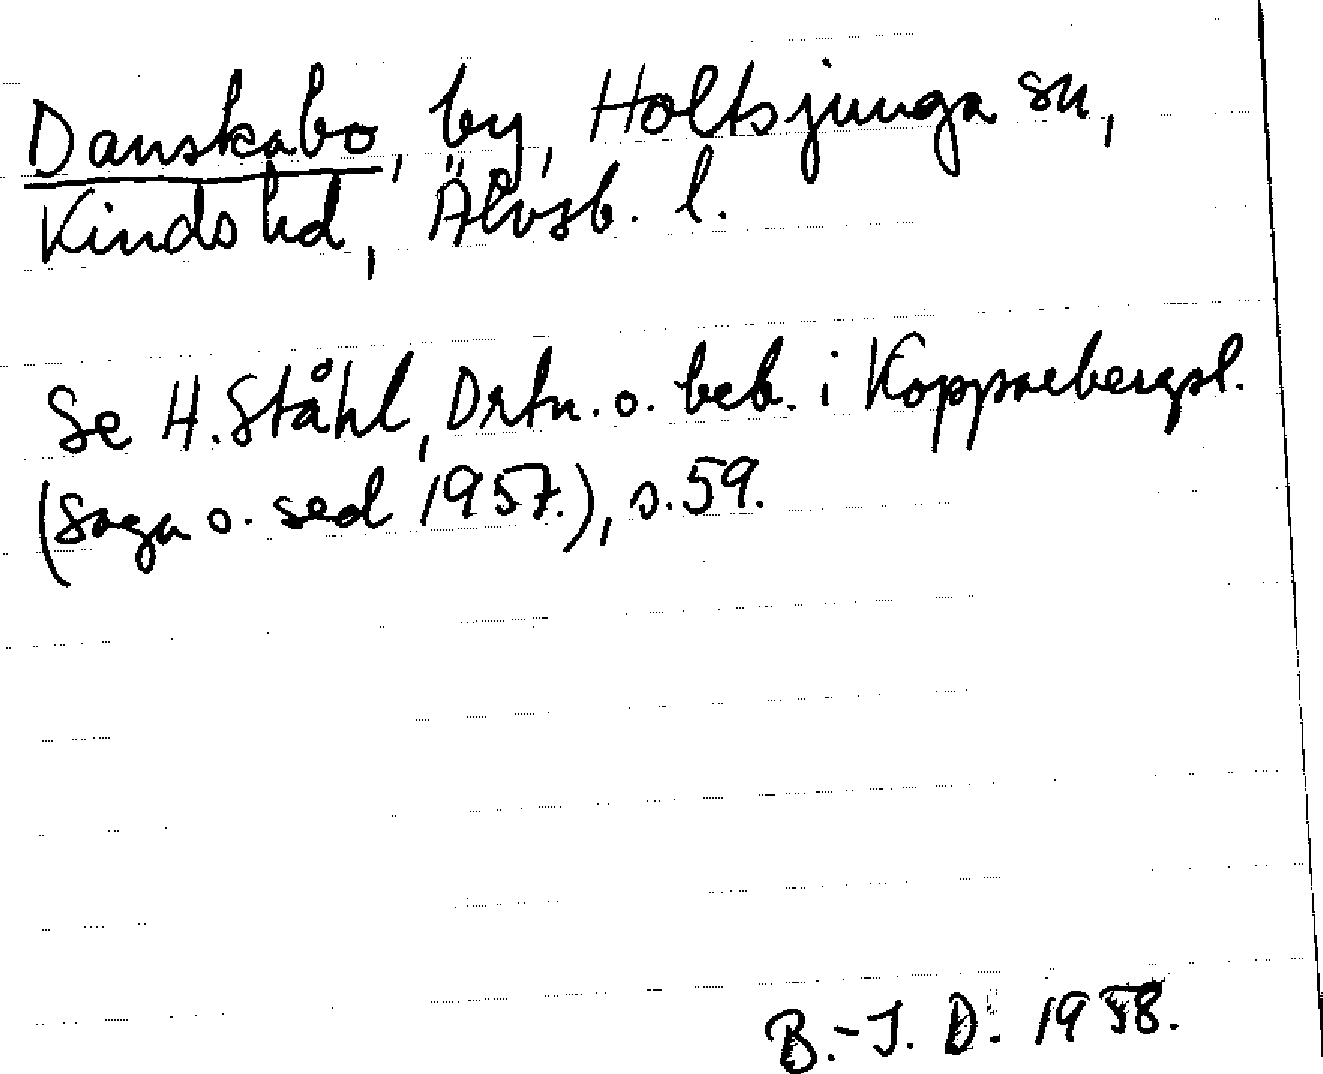 Danskabo, by, Holtsjunga sn,
Kinds hd, Älvsb. l.
Se H. Ståhl, Ortn. o. beb. i Kopparbergsl.
(Saga o. sed 1957.), s. 59.
B.-I. D. 1958.